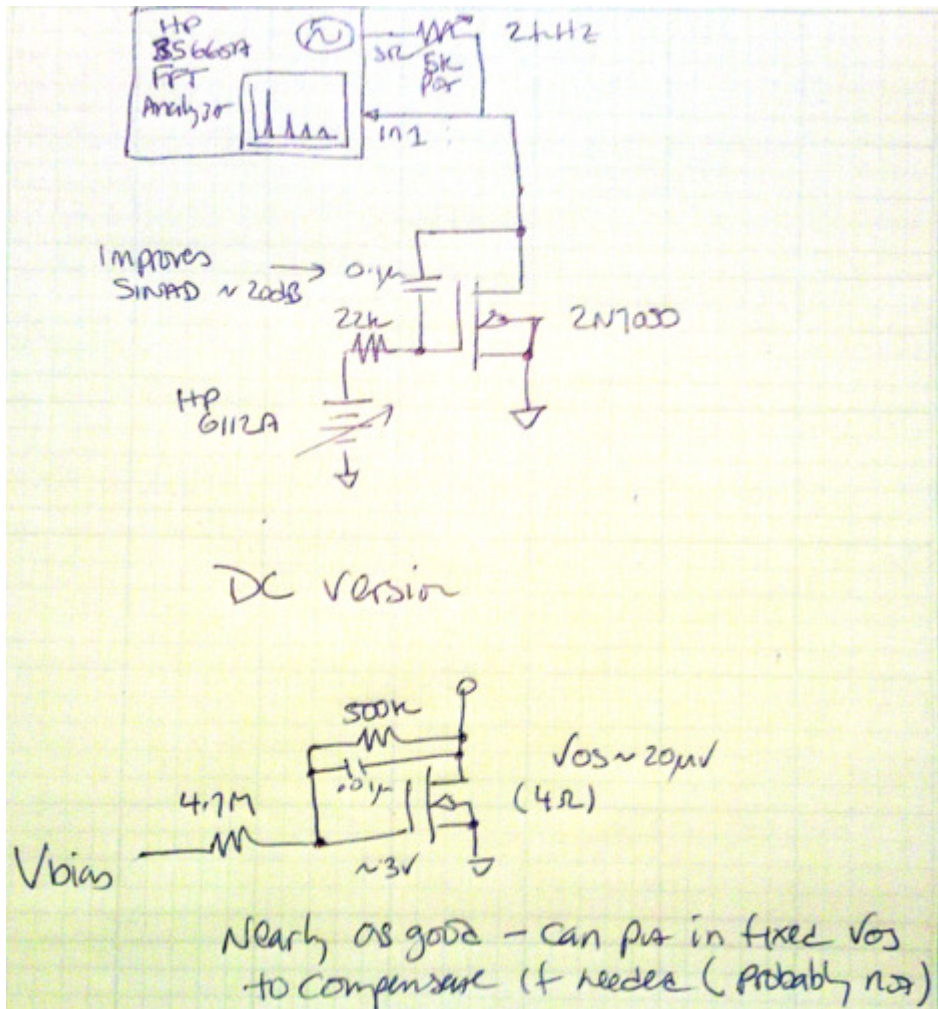 HP
35660A
FFT
Analyzer
src
5k
Pot
2kHz
in 1
Improves
SINAD ~20dB
0.1µ
22k
2N7000
HP
6112A
DC version
500k
.01µ
Vos ~ 20µV
(4Ω)
4.7M
Vbias
~3V
Nearly as good - can put in fixed Vos
to compensate if needed (probably not)